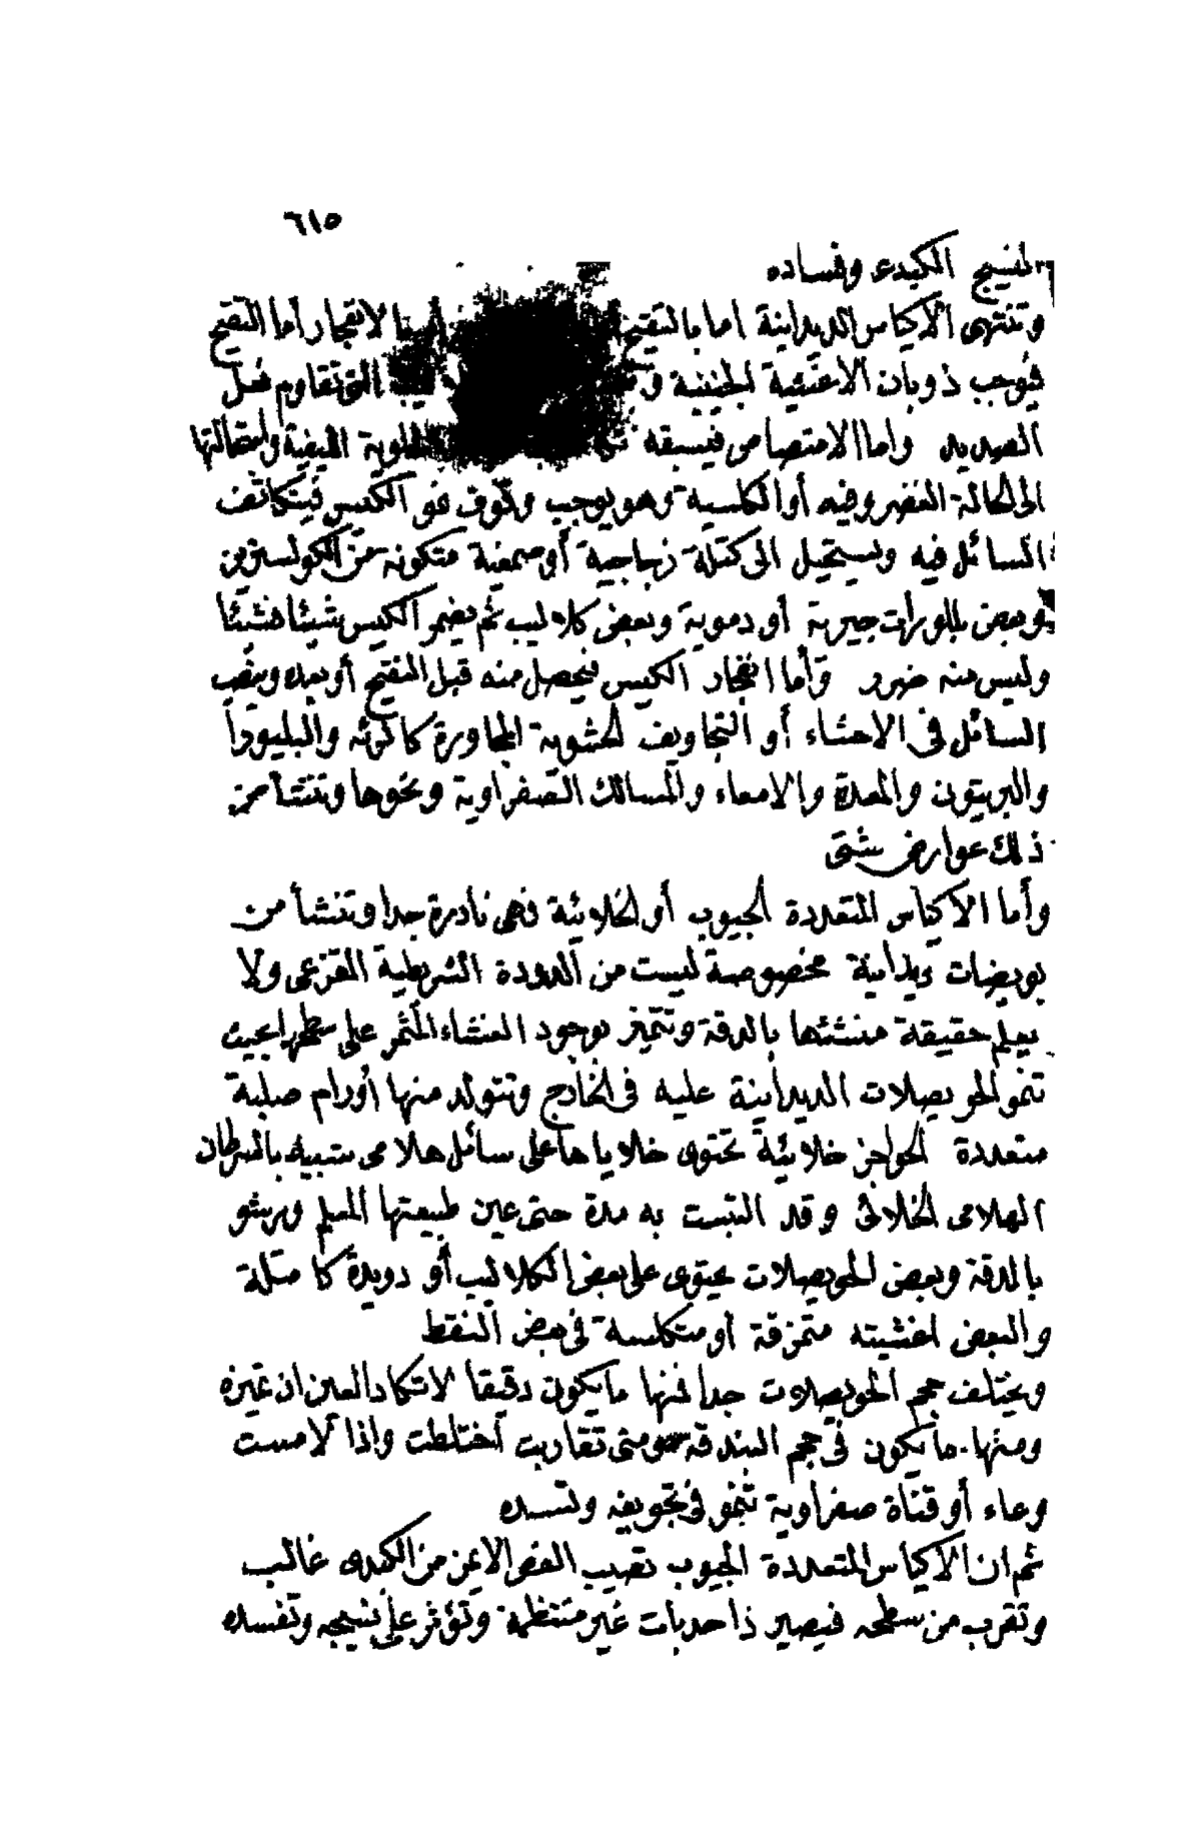 ٦١٥
لنسيج الكبدى وفساده
وتنتهى الاكياس الديدانية اما بالتقيح الانفجار أما التقيح
فيوجب ذوبان الاغشية الجنينية التى تقاوم فعل
الصديد واما الامتصاص فيسبقه الليفية واستحالتها
الى الحالة الغضروفيه أو الكلسية وهو يوجب وقوف نمو الكيس فيتكاثف
السائل فيه ويستحيل الى كتلة زجاجية أو صمغية متكونة من الكولسترين
وبعض بللورات جيرية أو دموية وبعض كلاليب ثم يضمر الكيس شيئا فشيئا
وليس منه ضرر وأما انفجار الكيس فيحصل منه قبل التقيح أو بعده وينصب
السائل فى الاحشاء أو التجاويف الحشوية المجاورة كالرئه والبليورا
والبريتون والمعدة والامعاء والمسالك الصفراوية ونحوها وتنشأ من
ذلك عوارض شتى
وأما الاكياس المتعددة الجيوب أو الخلائية فهى نادرة جدا وتنشأ من
بويضات ديدانية مخصوصة ليست من الدودة الشريطية القزعى ولا
يعلم حقيقة منشئها بالدقة وتتميز بوجود الغشاء المثمر على سطحها بحيث
تنمو الحويصلات الديدانية عليه فى الخارج وتتولد منها أورام صلبة
متعددة الحواجز خلائية تحتوى خلاياها على سائل هلامى شبيه بالسرطان
الهلامى الخلائى وقد التبست به مدة حتى عين طبيعتها المعلم ويرشو
بالدقة وبعض الحويصلات يحتوى على بعض الكلاليب أو دويدة كاملة
والبعض اغشيته متمزقة أو متكلسة فى بعض النقط
ويختلف حجم الحويصلات جدا فمنها ما يكون دقيقا لا تكاد العين ان تميزه
ومنها ما يكون فى حجم البندقة ومتى تقاربت اختلطت واذا لامست
وعاء أو قناة صفراوية تنمو فى تجويفه وتسده
ثم ان الاكياس المتعددة الجيوب تصيب الفص الايمن من الكبدى غالب
وتقرب من سطحه فيصير ذا حدبات غير منتظمة وتؤثر على نسيجه وتفسده